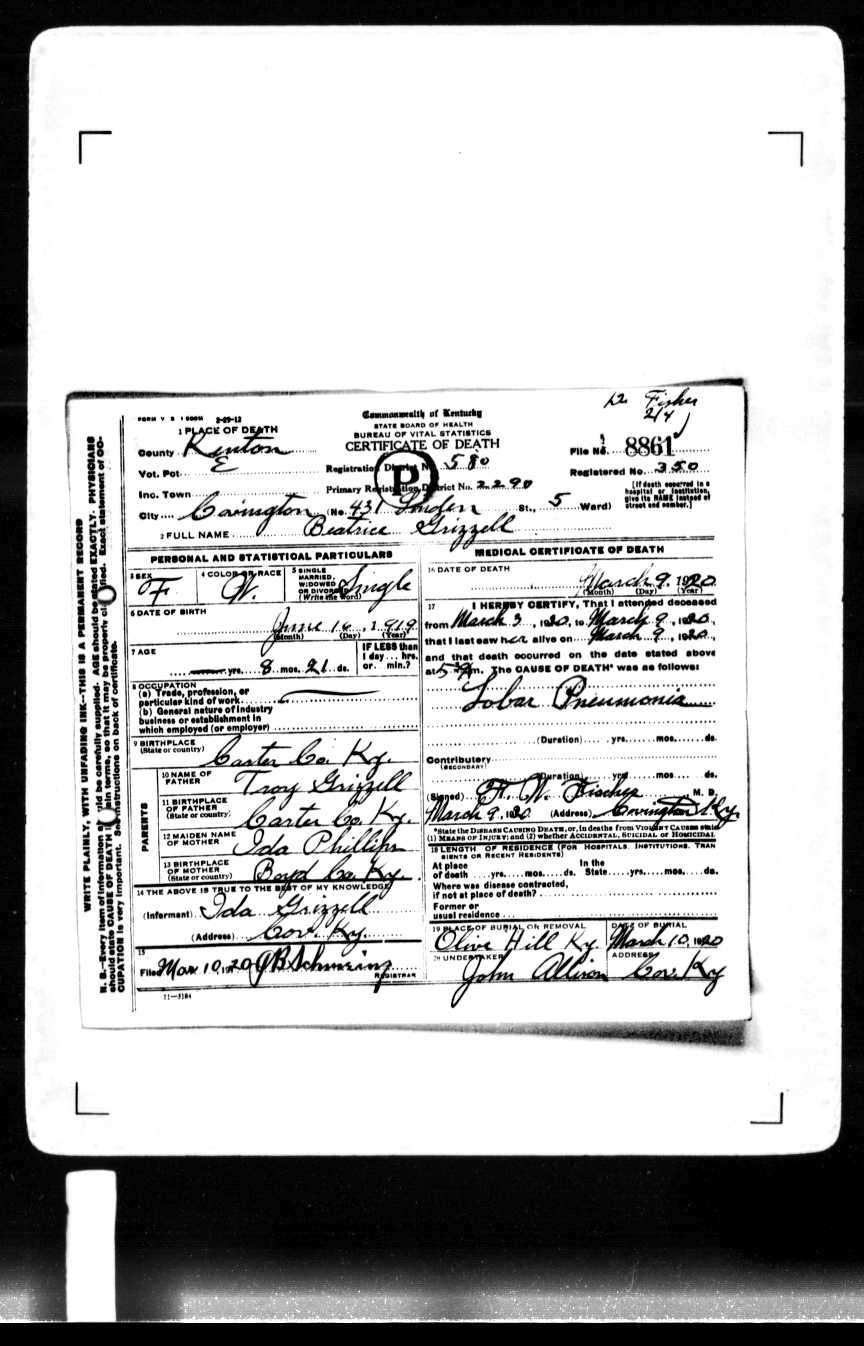 Dr. Fisher
2/4
FORM V S 1 500M 2-29-12
Commonwealth of Kentucky
STATE BOARD OF HEALTH
BUREAU OF VITAL STATISTICS
CERTIFICATE OF DEATH
1 PLACE OF DEATH
County Kenton
Vot. Pct. E
Inc. Town
City Covington (No. 431 Linden St., 5 Ward)
Registration District No. 580
Primary Registration District No. 2290
P
File No. 8861
Registered No. 350
[If death occurred in a hospital or institution, give its NAME instead of street and number.]
2 FULL NAME Beatrice Grizzell
PERSONAL AND STATISTICAL PARTICULARS
3 SEX F
4 COLOR OR RACE W.
5 SINGLE MARRIED, WIDOWED OR DIVORCED (Write the word) Single
6 DATE OF BIRTH
June 16, 1919
(Month) (Day) (Year)
7 AGE
yrs. 8 mos. 21 ds.
IF LESS than 1 day... hrs. or min.?
8 OCCUPATION
(a) Trade, profession, or particular kind of work
(b) General nature of industry business or establishment in which employed (or employer)
9 BIRTHPLACE (State or country) Carter Co. Ky.
PARENTS
10 NAME OF FATHER Troy Grizzell
11 BIRTHPLACE OF FATHER (State or country) Carter Co. Ky.
12 MAIDEN NAME OF MOTHER Ida Phillips
13 BIRTHPLACE OF MOTHER (State or country) Boyd Co. Ky.
14 THE ABOVE IS TRUE TO THE BEST OF MY KNOWLEDGE
(Informant) Ida Grizzell
(Address) Cov. Ky.
15
Filed Mar. 10, 1920 REGISTRAR
11-3184
MEDICAL CERTIFICATE OF DEATH
16 DATE OF DEATH
March 9, 1920
(Month) (Day) (Year)
17 I HEREBY CERTIFY, That I attended deceased
from March 3, 1920, to March 9, 1920,
that I last saw her alive on March 9, 1920,
and that death occurred on the date stated above
at m. The CAUSE OF DEATH* was as follows:
Lobar Pneumonia
(Duration) yrs. mos. ds.
Contributory
(SECONDARY)
(Duration) yrs. mos. ds.
(Signed) W. Fischer M. D.
March 9, 1920 (Address) Covington Ky.
*State the DISEASE CAUSING DEATH, or, in deaths from VIOLENT CAUSES state
(1) MEANS OF INJURY; and (2) whether ACCIDENTAL, SUICIDAL or HOMICIDAL
18 LENGTH OF RESIDENCE (FOR HOSPITALS, INSTITUTIONS, TRANSIENTS OR RECENT RESIDENTS)
At place of death yrs. mos. ds. In the State yrs. mos. ds.
Where was disease contracted,
if not at place of death?
Former or
usual residence
19 PLACE OF BURIAL OR REMOVAL Olive Hill Ky.
DATE OF BURIAL March 10, 1920
20 UNDERTAKER John Allison
ADDRESS Cov. Ky
WRITE PLAINLY, WITH UNFADING INK—THIS IS A PERMANENT RECORD
N. B.—Every item of information should be carefully supplied. AGE should be stated EXACTLY. PHYSICIANS
should state CAUSE OF DEATH in plain terms, so that it may be properly classified. Exact statement of OC-
CUPATION is very important. See instructions on back of certificate.